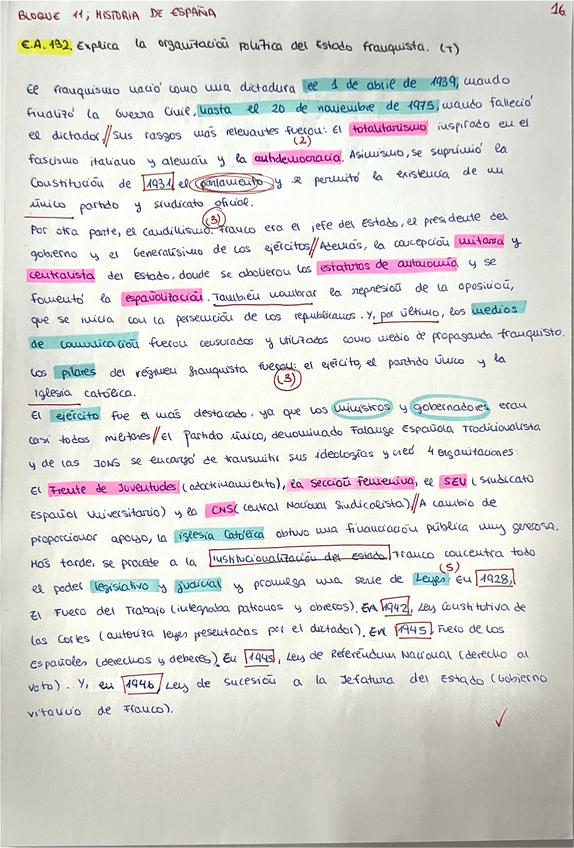 BLOQUE 11; HISTORIA DE ESPAÑA 16
E.A. 132. Explica la organización política del Estado Franquista. (T)
El franquismo nació como una dictadura el 1 de abril de 1939, cuando
finalizó la Guerra Civil, hasta el 20 de noviembre de 1975, cuando falleció
el dictador.//Sus rasgos más relevantes fueron: El totalitarismo inspirado en el
(2)
fascismo italiano y alemán y la antidemocracia. Asimismo, se suprimió la
Constitución de 1931, el parlamento y se permitó la existencia de un
único partido y sindicato oficial.
(3)
Por otra parte, el caudillismo. Franco era el jefe del Estado, el presidente del
gobierno y el Generalísimo de los ejércitos//Además, la concepción unitaria y
centralista del Estado, donde se abolieron los estatutos de autonomía y se
fomentó la españolización. También nombrar la represión de la oposición,
que se inicia con la persecución de los republicanos. Y, por último, los medios
de comunicación fueron censurados y utilizados como medio de propaganda franquista.
Los pilares del régimen franquista fueron: el ejército, el partido único y la
(3)
Iglesia católica.
El ejército fue el más destacado, ya que los ministros y gobernadores eran
casi todos militares//El Partido único, denominado Falange Española Tradicionalista
y de las JONS se encargó de transmitir sus ideologías y creó 4 organizaciones:
El Frente de Juventudes (adoctrinamiento), la Sección Femenina, el SEU (Sindicato
Español Universitario) y la CNS (Central Nacional Sindicalista),//A cambio de
proporcionar apoyo, la iglesia Católica obtuvo una financiación pública muy generosa.
Más tarde, se procede a la institucionalización del estado, Franco concentra todo
(5)
el poder legislativo y judicial y promulga una serie de Leyes: En 1928,
El Fuero del Trabajo (integraba patronos y obreros). En 1942, Ley Constitutiva de
las Cortes (autoriza leyes presentadas por el dictador). En 1945, Fuero de los
Españoles (derechos y deberes). En 1945, Ley de Referéndum Nacional (derecho al
voto). Y, en 1946, Ley de sucesión a la Jefatura del Estado (Gobierno
vitalicio de Franco).